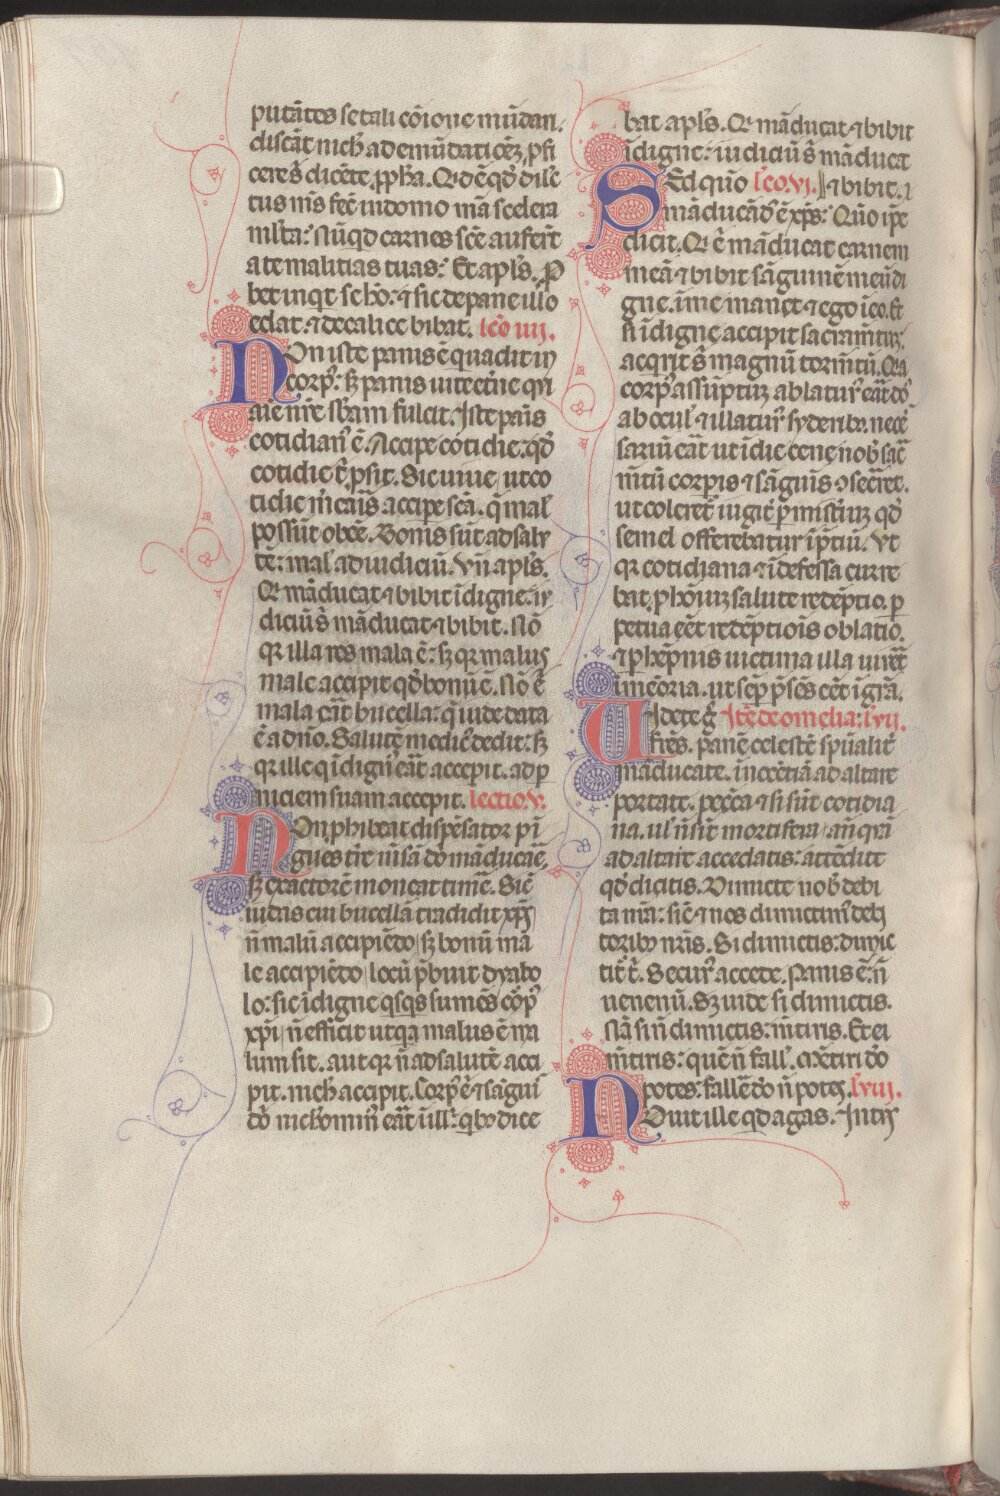 putātes se tali cōione mūdari.
discāt nich ad emūdatiōez ꝓfi
cere s̄ dicēte ꝓph̄a. Q̄ ē qd̄ dilc̄
tus m̄s fec̄ in domo m̄a scelera
ml̄ta: Nūqd carnes sc̄e auferēt
a te malitias tuas: Et apl̄s. P̄
bet inqt se hō: ⁊ sic de pane illo
edat. ⁊ de calice bibat. lc̄o iiij.
Non iste panis ē qua dit in
corpꝰ: sꝫ panis uite et̄ne qui
aīe nr̄e sb̄am fulcit. Iste pais
cotidianꝰ ē. Accipe cotidie. qd̄
cotidie t̄ ꝓsit. Sic uiue ut co
tidie m̄eāis accipe scā. q̄ mal̄
possūt obēē. Bonis sūt ad salu
tē: mal̄ ad iudiciū. Vn̄ apl̄s.
Q̄ māducat ⁊ bibit īdigne. iu
diciū s̄ māducat ⁊ bibit. Nō
qr illa res mala ē: sꝫ qr malus
male accipit qd̄ bonū ē. Nō ē
mala eāt bucella: q̄ iude data
ē a dn̄o. Salutē medicꝰ dedit: sꝫ
qr ille q īdignꝰ eāt accepit. ad p̄
niciem suam accepit. lectio. v.
Non ꝓhibeat dispēsator pī
gues tr̄e m̄sā dō māducaē,
sꝫ exactorē moneat timē. Sic̄
iudas cui bucellā tradidit xp̄s
n̄ malū accipiēdo sꝫ bonū ma
le accipiēdo locū p̄buit dyabo
lo: sic īdigne qsqs sumēs cōpꝰ
xp̄i n̄ efficit ut qa malus ē ma
lum sit. aut qr n̄ ad salutē acci
pit. nich accipit. Corpꝰ ē ⁊ sāgui
dō nichominꝰ eāt ill̄: qbꝫ dice
bat apl̄s. Q̄ māducat ⁊ bibit
īdigne: iudiciū s̄ māducat
Sed quō lc̄o. vi. ⁊ bibit.
māducād' ē xp̄s: Quō ipe
dicit. Q̄ ē māducat carnem
meā ⁊ bibit sāguinē meū di
gne. ī me manet ⁊ ego ī eo. Et
si īdigne accipit sacram̄tū.
acqrit s̄ magnū torm̄tū. Qa
corpꝰ assūptuꝫ ablaturꝰ eāt dō
ab oculꝭ ⁊ illaturꝰ syderibꝫ. necē
sariū eāt ut ī die cene nob̄ sac̄
m̄tū corpis ⁊ sāguis ꝯsec̄ret.
ut coleret̄ iugit̄ p mist̄iuꝫ qd̄
semel offerebatur ī p̄tiū. Vt
qr cotidiana ⁊ īdefessa curre
bat ꝓ hōīuꝫ salute redēptio. p
petua eēt redēptiōis oblatio.
⁊ phēpnis uictima illa uiuet̄
ī meōria. ut sēp p̄sēs eēt ī grā.
Uidete ḡ Itē de omelia: lvij.
frēs. panē celestē spūalit̄
māducate. īnocētiā ad altare
portate. pecc̄a ⁊ si sūt cotidia
na. ul̄ n̄ sīt mortifera: an̄ quā
ad altare accedatis: attēdite
qd̄ dicitis. Dimicte nob̄ debi
ta nr̄a: sic̄ ⁊ nos dimictimꝰ deb̄
toribꝫ nr̄is. Si dimictis: dimic
tit̄ t̄. Securꝰ accede. Panis ē: n̄
uenenū. Sꝫ uide si dimictis.
Nā si n̄ dimictis: m̄tiris. Et ei
m̄tiris: quē n̄ fall̄. Mētiri dō
potes: fallē dō n̄ potes. lviij.
Nouit ille qd agas. Intꝰ